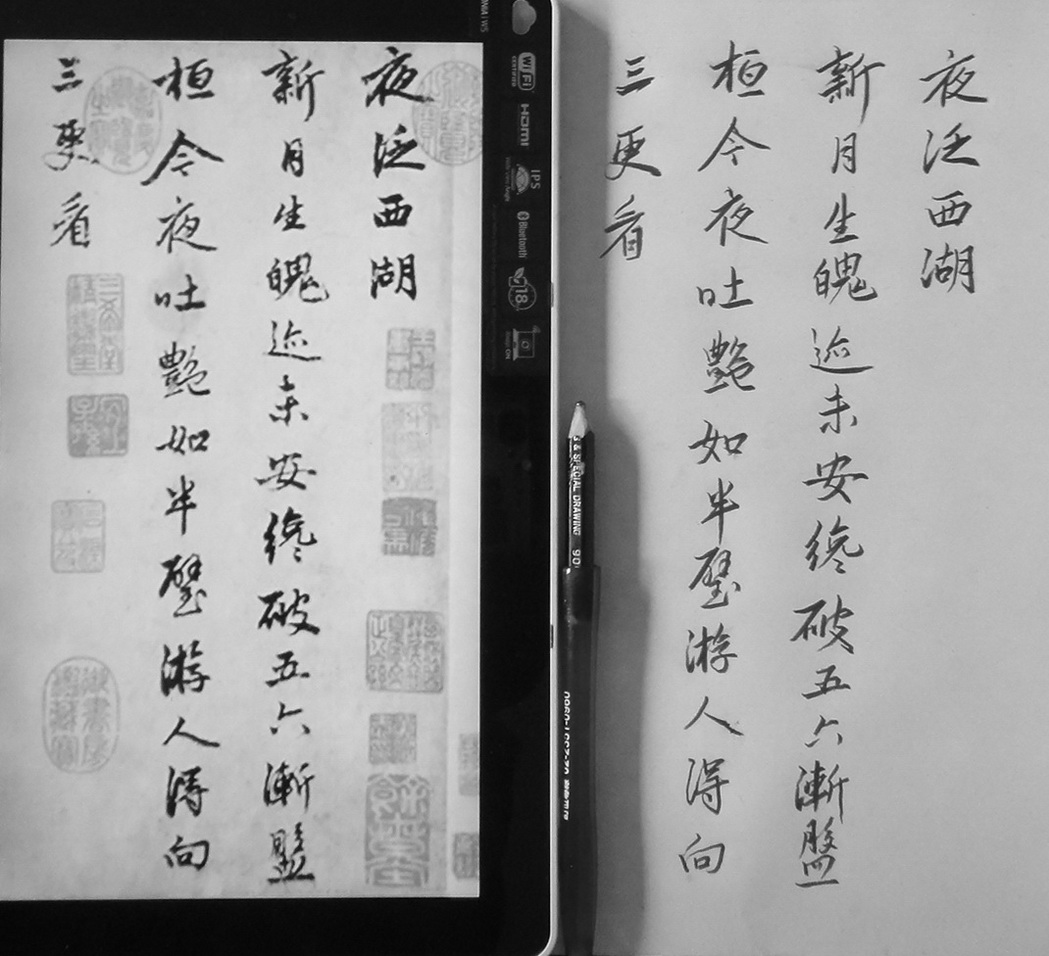 夜泛西湖
新月生魄迹未安纔破五六漸盤
桓今夜吐艷如半璧游人得向
三更看
Wi Fi
CERTIFIED
HDMI
IPS
Bluetooth
18
夜泛西湖
新月生魄迹未安纔破五六漸盤
桓今夜吐艷如半璧游人得向
三更看
& SPECIAL DRAWING 90